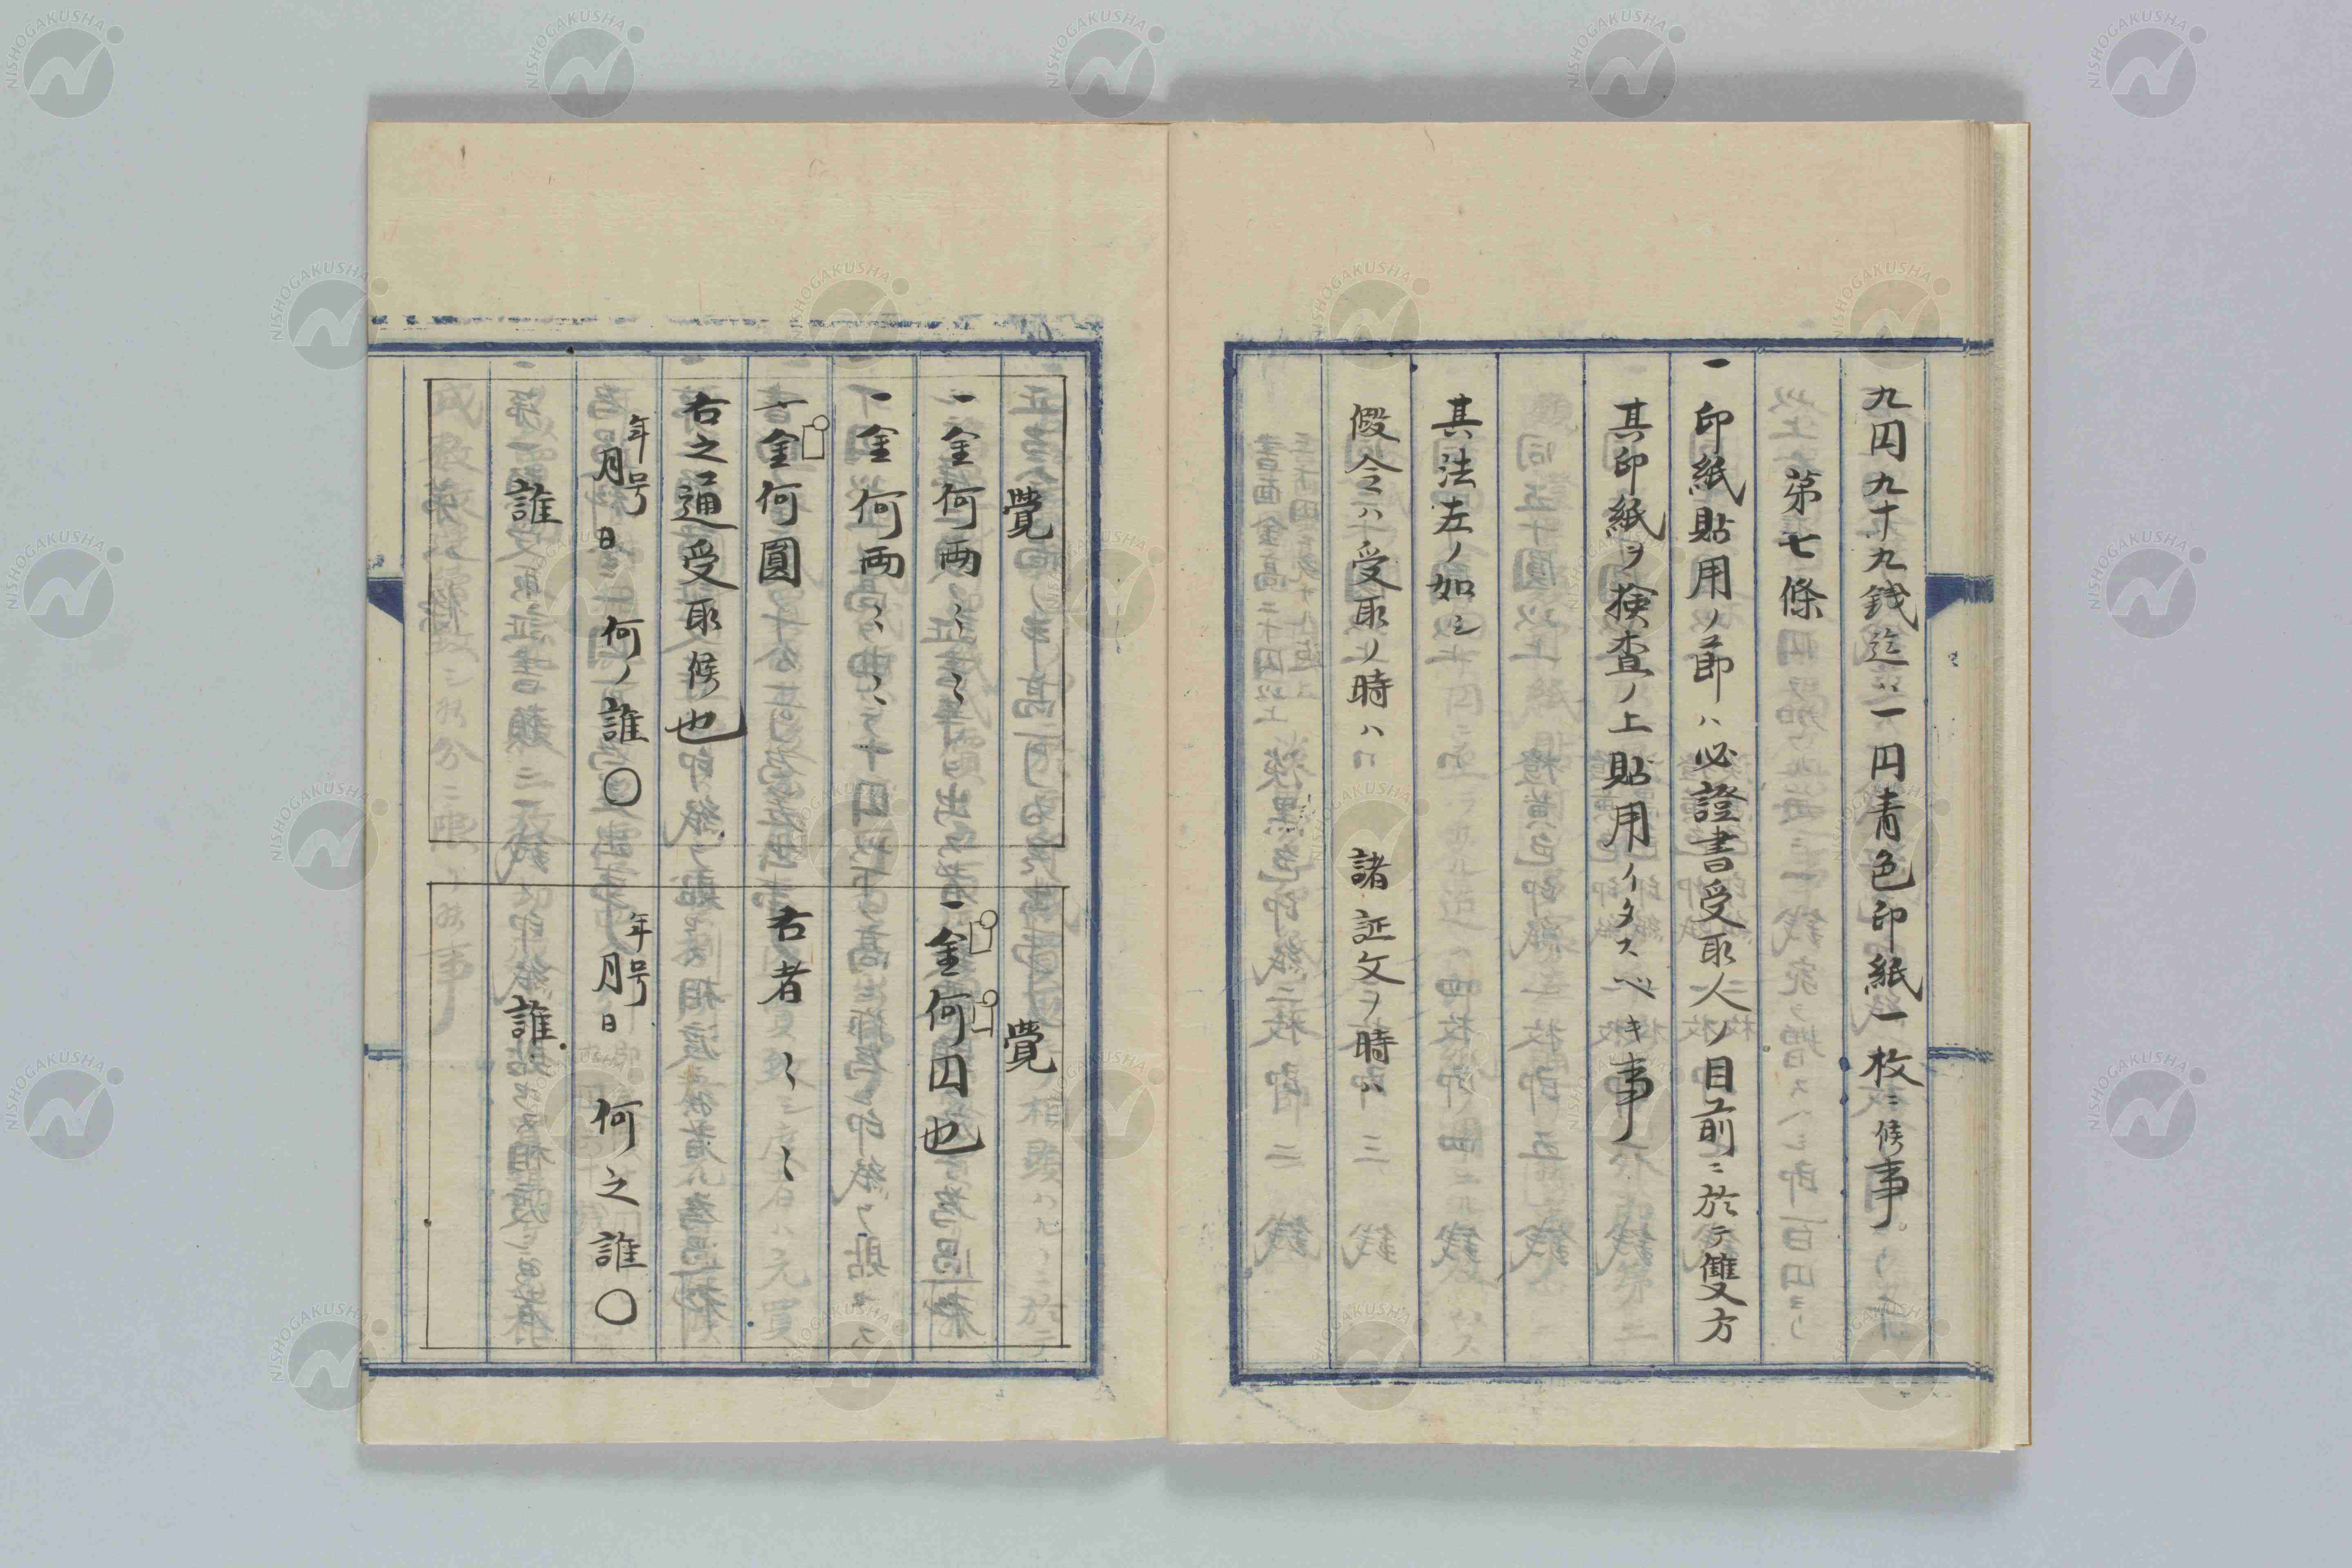 九円九十九銭迄ハ一円青色印紙一枚ニ候事
第七條
一印紙貼用ノ節ハ必證書受取人ノ目前ニ於テ雙方
其印紙ヲ検査ノ上貼用イタスベキ事
其法左ノ如シ
假令ハ受取ノ時ハ 諸証文ノ時ハ
覺
一金何両〻〻
一金何両〻〻
一金何圓
右之通受取候也
年号月日 何ノ誰〇
誰
覺
一金何円也
右者〻〻
年号月日 何之誰〇
誰
NISHOGAKUSHA